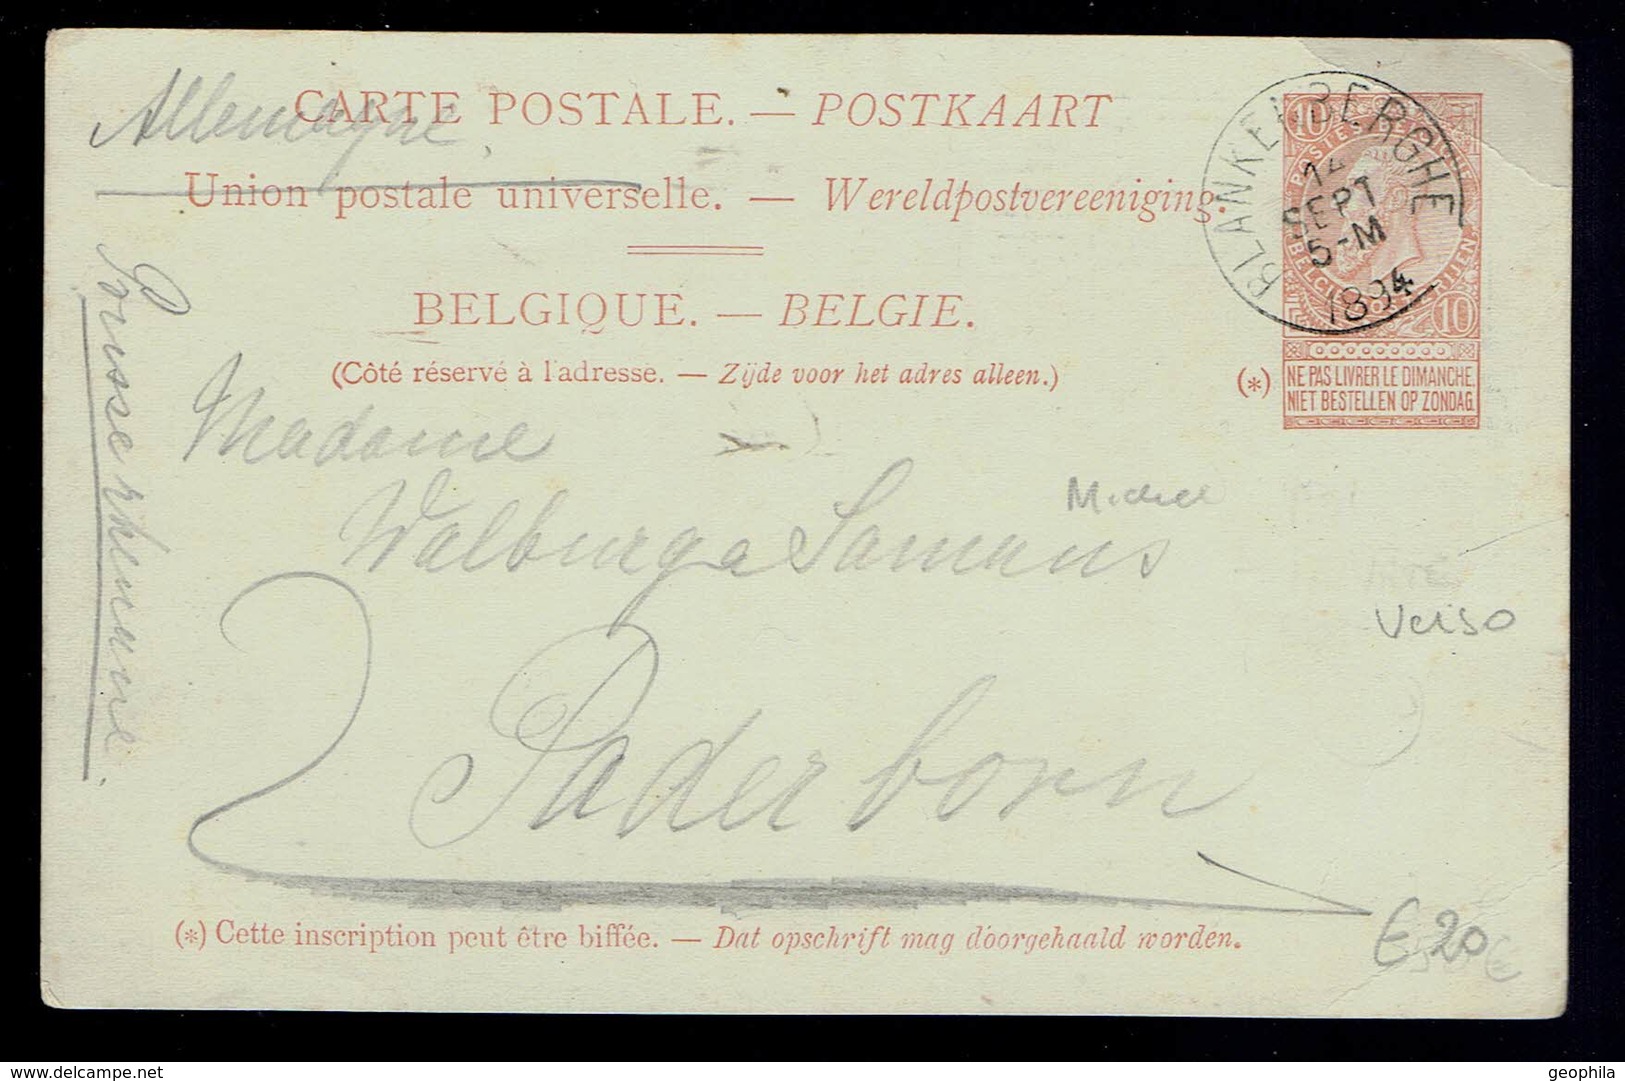 Allemagne
CARTE POSTALE. — POSTKAART
Union postale universelle. — Wereldpostvereeniging.
BELGIQUE. — BELGIE.
(Côté réservé à l'adresse. — Zijde voor het adres alleen.)
BLANKENBERGHE
14
SEPT
5-M
1894
10
10
(*)
NE PAS LIVRER LE DIMANCHE.
NIET BESTELLEN OP ZONDAG.
Prusse rhenane.
Madame
Walburga Lamans
Michel
Verso
Paderborn
(*) Cette inscription peut être biffée. — Dat opschrift mag doorgehaald worden.
€ 20
delcampe.net
geophila